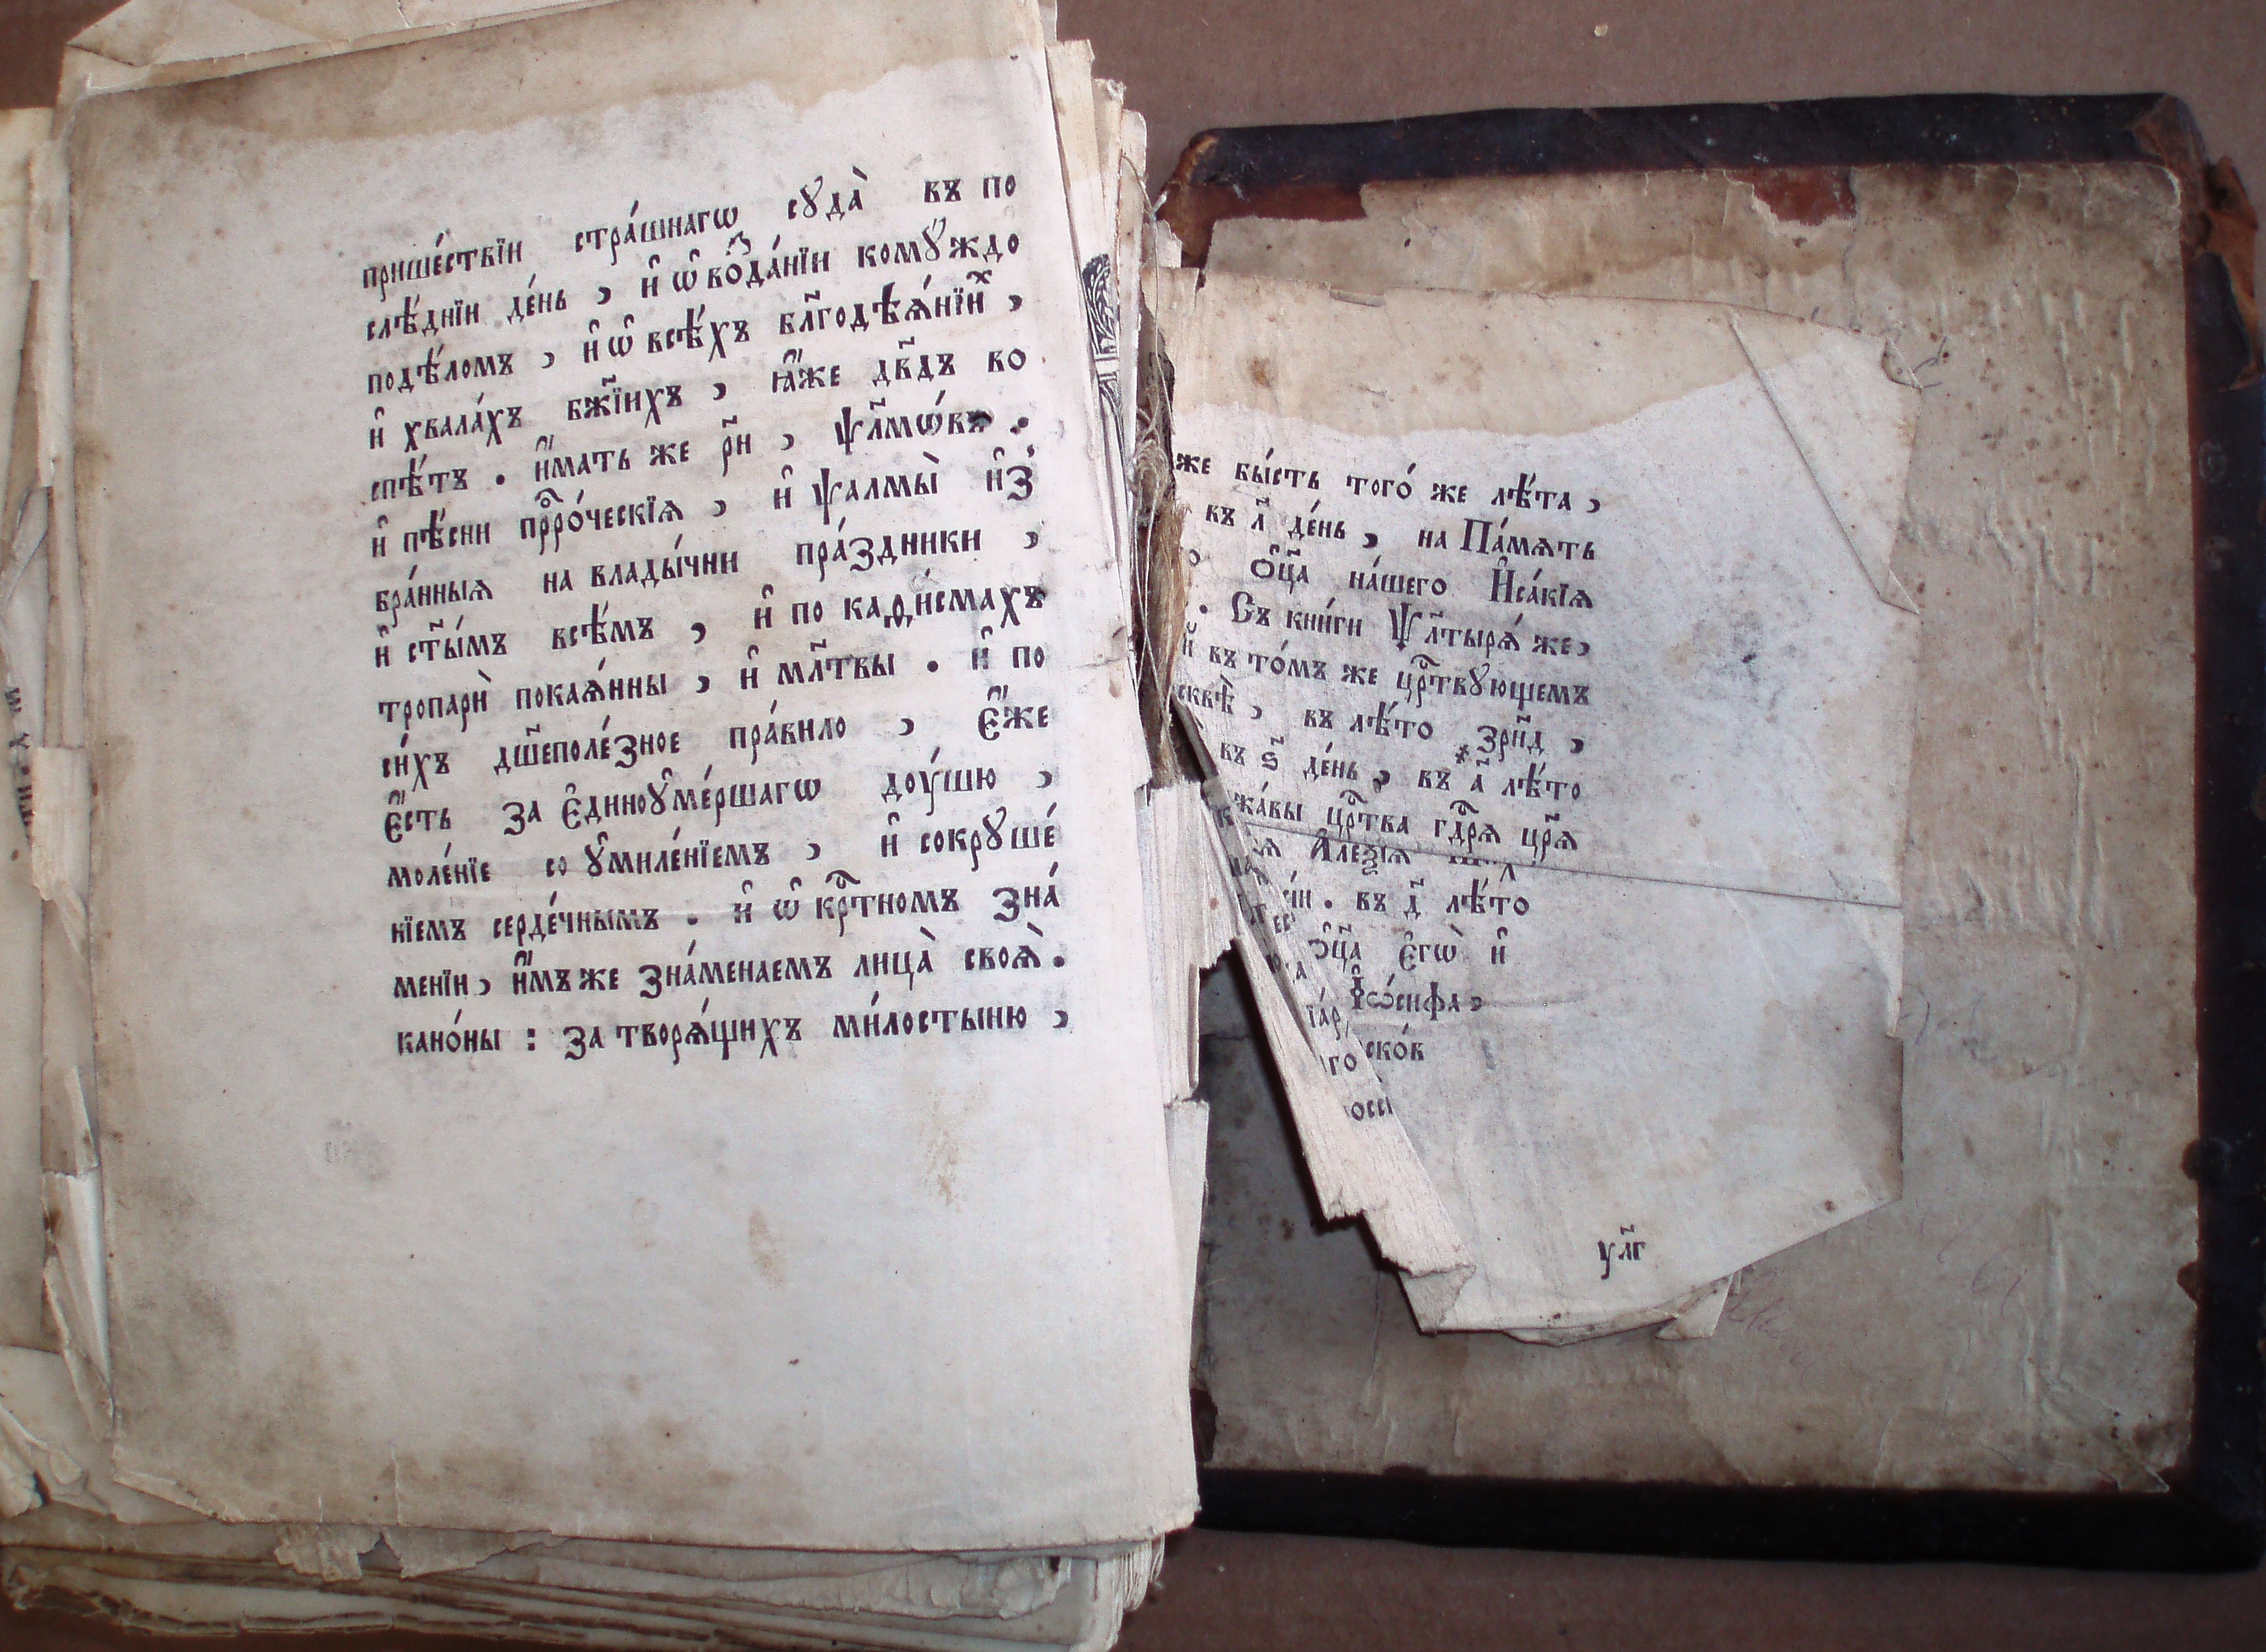 прише́ствїи стра́шнагѡ сꙋда̀ въ по
слѣ́днїи де́нь, и҆ ѡ҆ во́зⷣа́нїи комꙋ́ждо
подѣ́ломъ, и҆ ѡ҆ всѣ́хъ бл҃годѣѧ́нїиⷯ,
и҆ хвала́хъ бж҃їихъ, ꙗ҆́же дв҃дъ во
спѣ́тъ. и҆́мать же р҃н, ѱл҃мѡ́въ.
и҆ пѣ́сни прⷪ҇ро́ческїѧ, и҆ ѱалмы̀ и҆з̾
бра́нныѧ на влады́чни пра́здники,
и҆ ст҃ы́мъ всѣ́мъ, и҆ по каѳи́смахъ
тропарѝ покаѧ́нны, и҆ мл҃твы. и҆ по
си́хъ дш҃еполе́зное пра́вило, є҆́же
є҆́сть за є҆диноꙋ҆ме́ршагѡ доу́шю,
моле́нїе со ꙋ҆миле́нїемъ, и҆ сокрꙋше́
нїемъ серде́чнымъ. и҆ ѡ҆ крⷭ҇тномъ зна́
менїи, и҆́мъже зна́менаемъ лица̀ своѧ̀.
кано́ны : за творѧ́щихъ ми́лостыню,
же бы́сть того́ же лѣ́та,
въ л҃ де́нь, на Па́мѧть
ѻ҆ц҃а на́шего И҆са́кїѧ
. Съ кни́ги Ѱл҃тырѧ́ же,
и҆ въ то́мъ же црⷭ҇твꙋющемъ
сквѣ̀, въ лѣ́то ҂зрн҃д,
въ ѕ҃ де́нь, въ а҃ лѣ́то
жа́вы црⷭ҇тва гдⷭ҇рѧ цр҃ѧ
ѧ А҆леѯі́ѧ
въ д҃ лѣ́то
ѻ҆ц҃а є҆гѡ̀ и҆
І҆ѡ́сифа,
ско́в
ул҃г